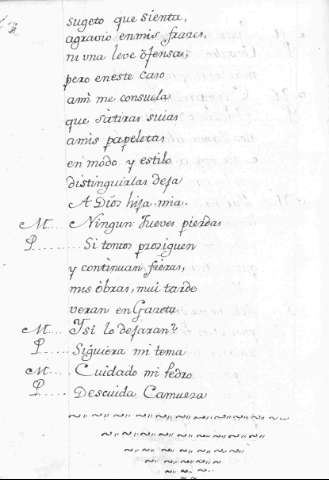 sugeto que sienta,
agravio en mis frazes,
ni una leve ofensa;
pero en este caso
a mi me consuela
que sátiras suias
a mis papeletas
en modo y estilo
distinguirlas deja
A Dios hija mia.
M.... Ningun Jueves pierdas
P........ Si tontos prosiguen
y continuan fieras,
mis obras, mui tarde
veran en Gazeta
M.... Y si lo dejaran?
P...... Siguiera mi tema
M.... Cuidado mi Pedro
P...... Descuida Camuesa